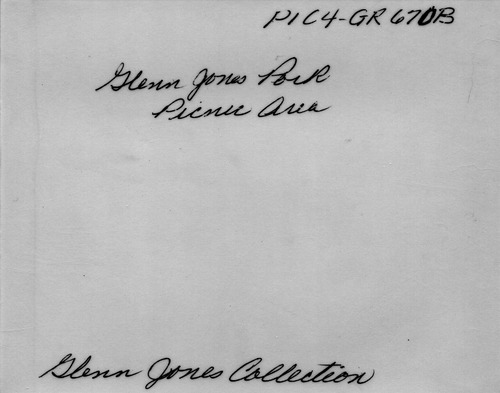 PIC4-GR670B
Glenn Jones Park
Picnic Area
Glenn Jones Collection